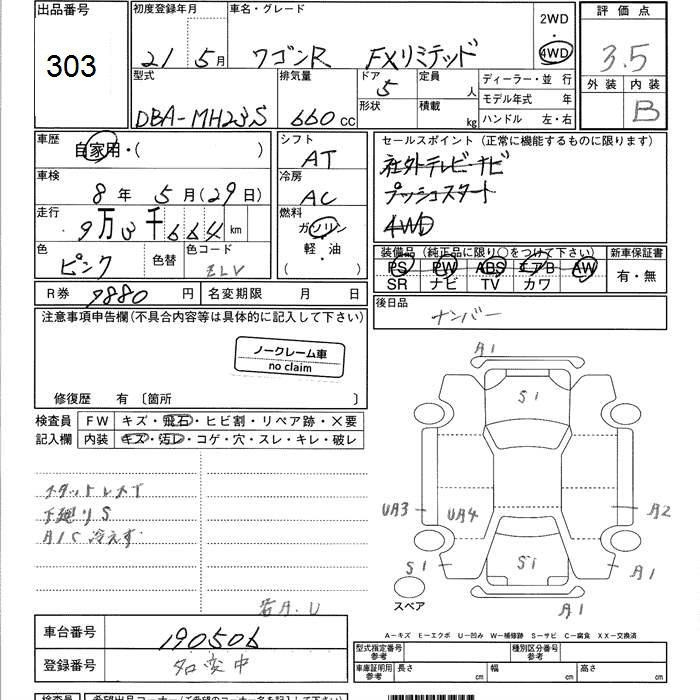 出品番号
303
初度登録年月
21年 5月
車名・グレード
ワゴンR FXリミテッド
2WD
4WD
評価点
3.5
外装 内装
B
型式
DBA-MH23S
排気量
660 cc
ドア
5
形状
定員
人
積載
kg
ディーラー・並 行
モデル年式 年
ハンドル 左・右
車歴
自家用・( )
シフト
AT
セールスポイント (正常に機能するものに限ります)
社外テレビナビ
プッシュスタート
4WD
車検
8年 5月(29日)
冷房
AC
走行
9万3千664 km
燃料
ガソリン
軽・油
( )
色
ピンク
色替
色コード
装備品 (純正品に限り○をつけて下さい)
PS PW ABS エアB AW
SR ナビ TV カワ
新車保証書
有・無
R券 9880 円
名変期限 月 日
後日品
ナンバー
注意事項申告欄(不具合内容等は具体的に記入して下さい)
ノークレーム車
no claim
修復歴 有 〔箇所 〕
検査員
記入欄
FW キズ・飛石・ヒビ割・リペア跡・×要
内装 キズ・汚レ・コゲ・穴・スレ・キレ・破レ
スタットレスT
下廻りS
A/C 冷えず
若A.U
A1
S1
UA3
UA4
A2
S1
S1
A1
A1
スペア
A-キズ E-エクボ U-凹み W-補修跡 S-サビ C-腐食 XX-交換済
車台番号
190506
登録番号
名変中
型式指定番号
参考
種別区分番号
参考
車庫証明用
参考
長さ cm
幅 cm
高さ cm
検査員
希望出品コーナー(ご希望のコーナー名を記入下さい)